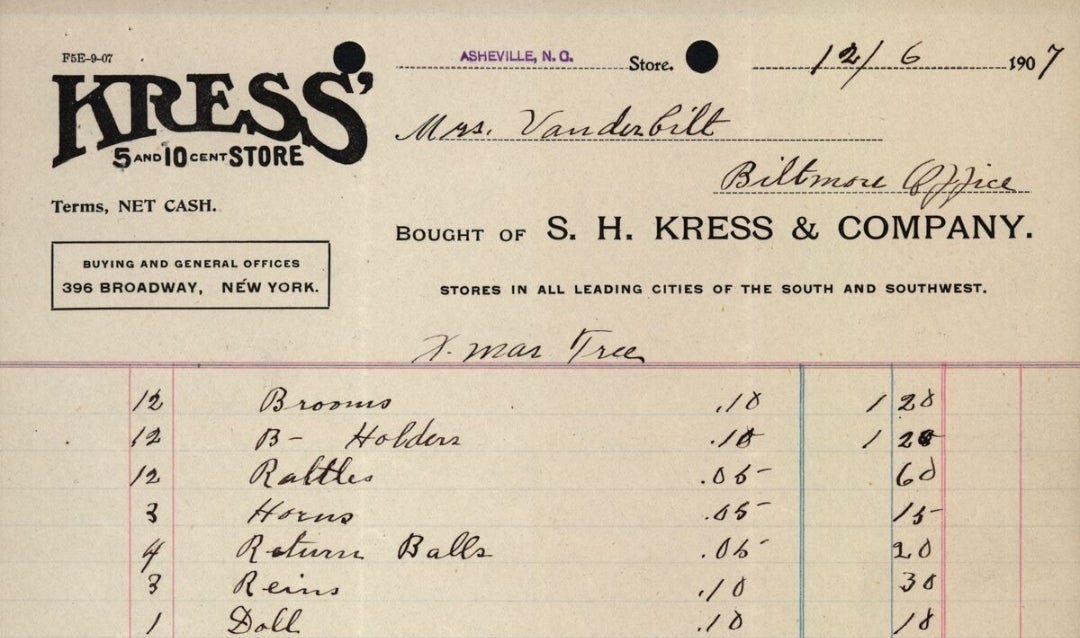 F5E-9-07
KRESS'
5 AND 10 CENT STORE
Terms, NET CASH.
BUYING AND GENERAL OFFICES
396 BROADWAY, NEW YORK.
ASHEVILLE, N. C. Store. 12/6 1907
Mrs. Vanderbilt
Biltmore Office
BOUGHT OF S. H. KRESS & COMPANY.
STORES IN ALL LEADING CITIES OF THE SOUTH AND SOUTHWEST.
X-mas Tree
12 Brooms .10 1 20
12 B- Holders .10 1 20
12 Rattles .05 60
3 Horns .05 15
4 Return Balls .05 20
3 Reins .10 30
1 Doll .10 10